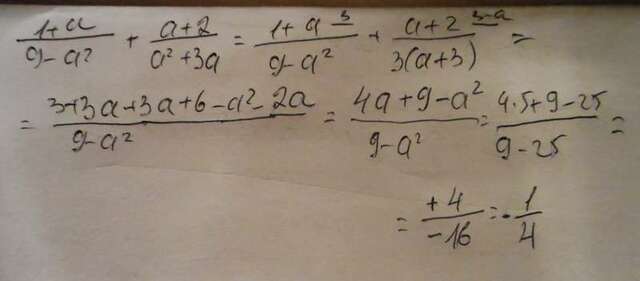 (1+a)/(9-a²) + (a+2)/(a²+3a) = (1+a ³)/(9-a²) + (a+2 ³⁻ᵃ)/(3(a+3)) =
= (3+3a+3a+6-a²-2a)/(9-a²) = (4a+9-a²)/(9-a²) = (4·5+9-25)/(9-25) =
= (+4)/(-16) = -1/4